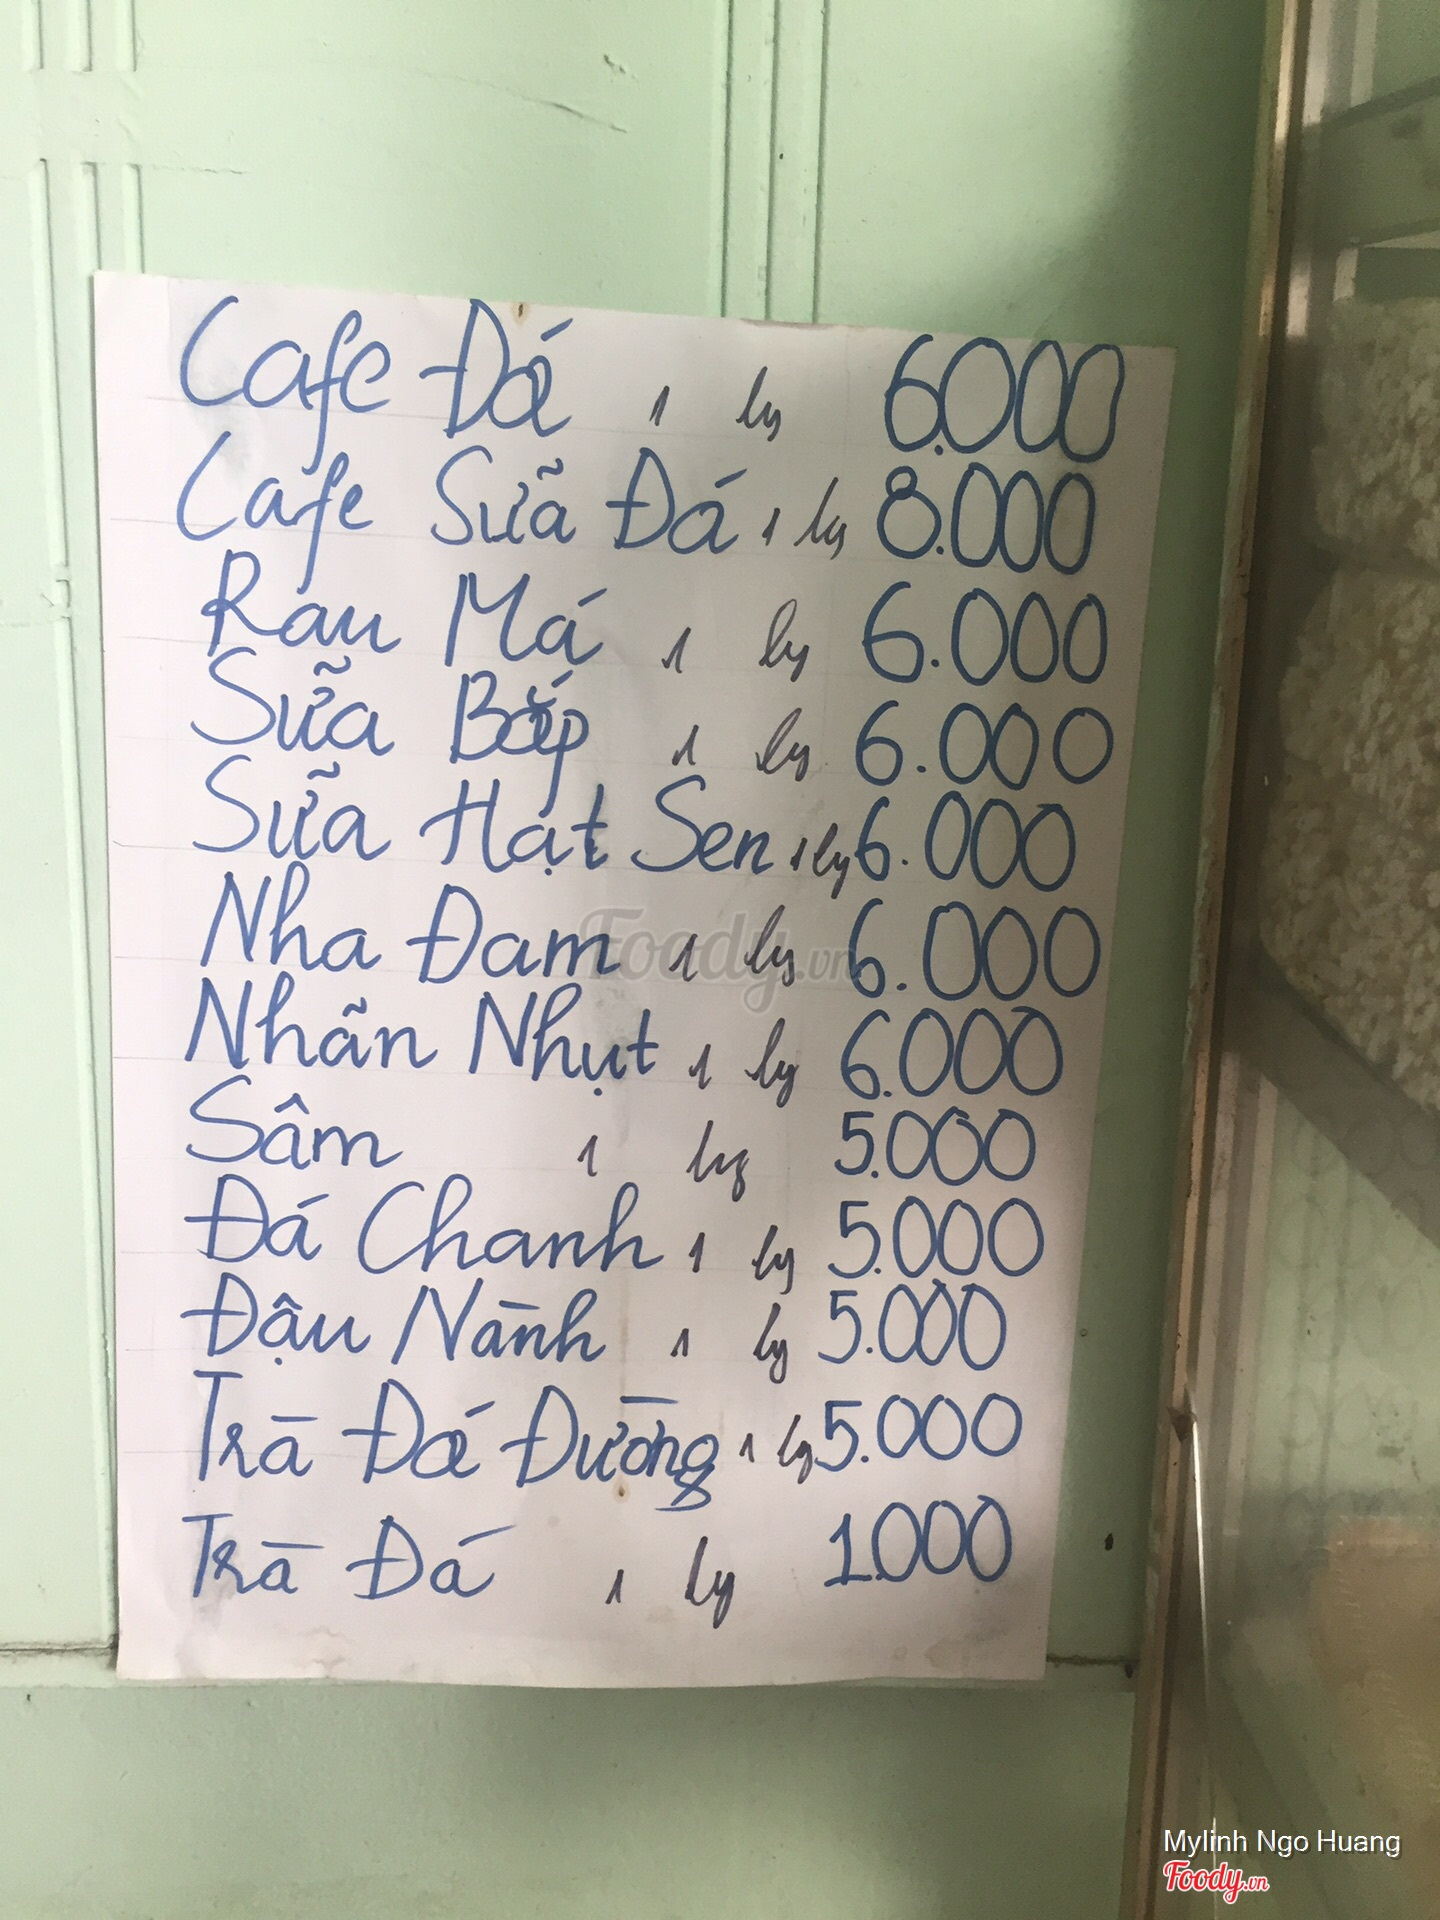 Cafe Đá 1 ly 6.000
Cafe Sữa Đá 1 ly 8.000
Rau Má 1 ly 6.000
Sữa Bắp 1 ly 6.000
Sữa Hạt Sen 1 ly 6.000
Nha Đam 1 ly 6.000
Nhãn Nhụt 1 ly 6.000
Sâm 1 ly 5.000
Đá Chanh 1 ly 5.000
Đậu Nành 1 ly 5.000
Trà Đá Đường 1 ly 5.000
Trà Đá 1 ly 1.000
Foody.vn
Mylinh Ngo Huang
Foody.vn